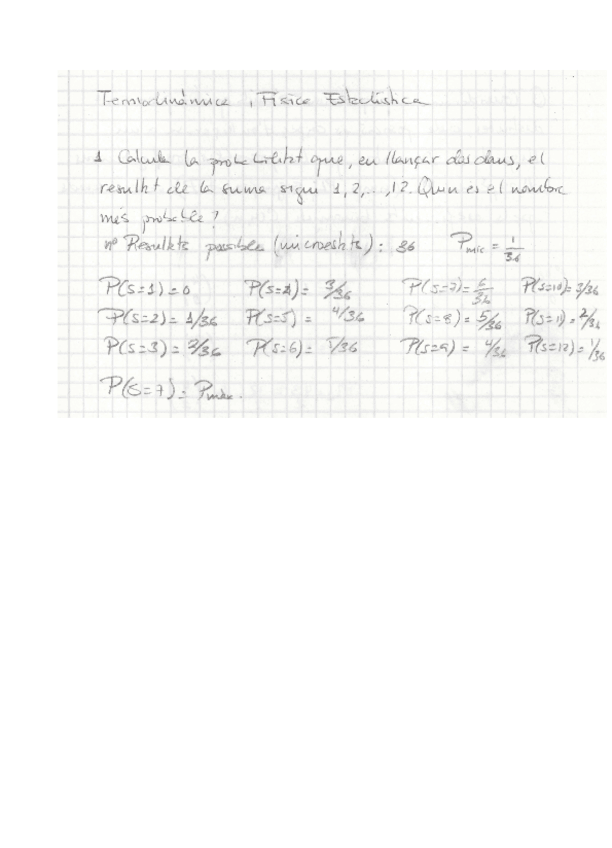 Termodinàmica i Física Estadística
1 Calcula la probabilitat que, en llançar dos daus, el
resultat de la suma sigui 1, 2, ..., 12. Quin es el nombre
més probable?
nº Resultats possibles (microestats): 36 Pmic = 1/36
P(s=1)=0 P(s=4)= 3/36 P(s=7)= 6/36 P(s=10)= 3/36
P(s=2)= 1/36 P(s=5) = 4/36 P(s=8)= 5/36 P(s=11) = 2/36
P(s=3) = 2/36 P(s=6)= /36 P(s=9) = 4/36 P(s=12)= 1/36
P(s=7) = Pmàx.